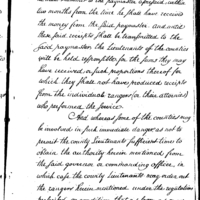 two months from the time he shall have received
the money from the said paymaster and until
these said receipts shall be transmitted to the
said paymaster the Lieutenants of the counties
will be held responsible for the sums they may
have received, or such proportions thereof for
which they shall not have produced receipts
from the individual rangers (or their attornies)
who performed the service
And whereas some of the counties may
be involved in such immediate danger as not to
permit the county Lieutenants sufficient time to
obtain the authority herein mentioned from
the said governor or commanding officer, in
which case the county Lieutenants may order out
the rangers herein mentioned, under the regulations